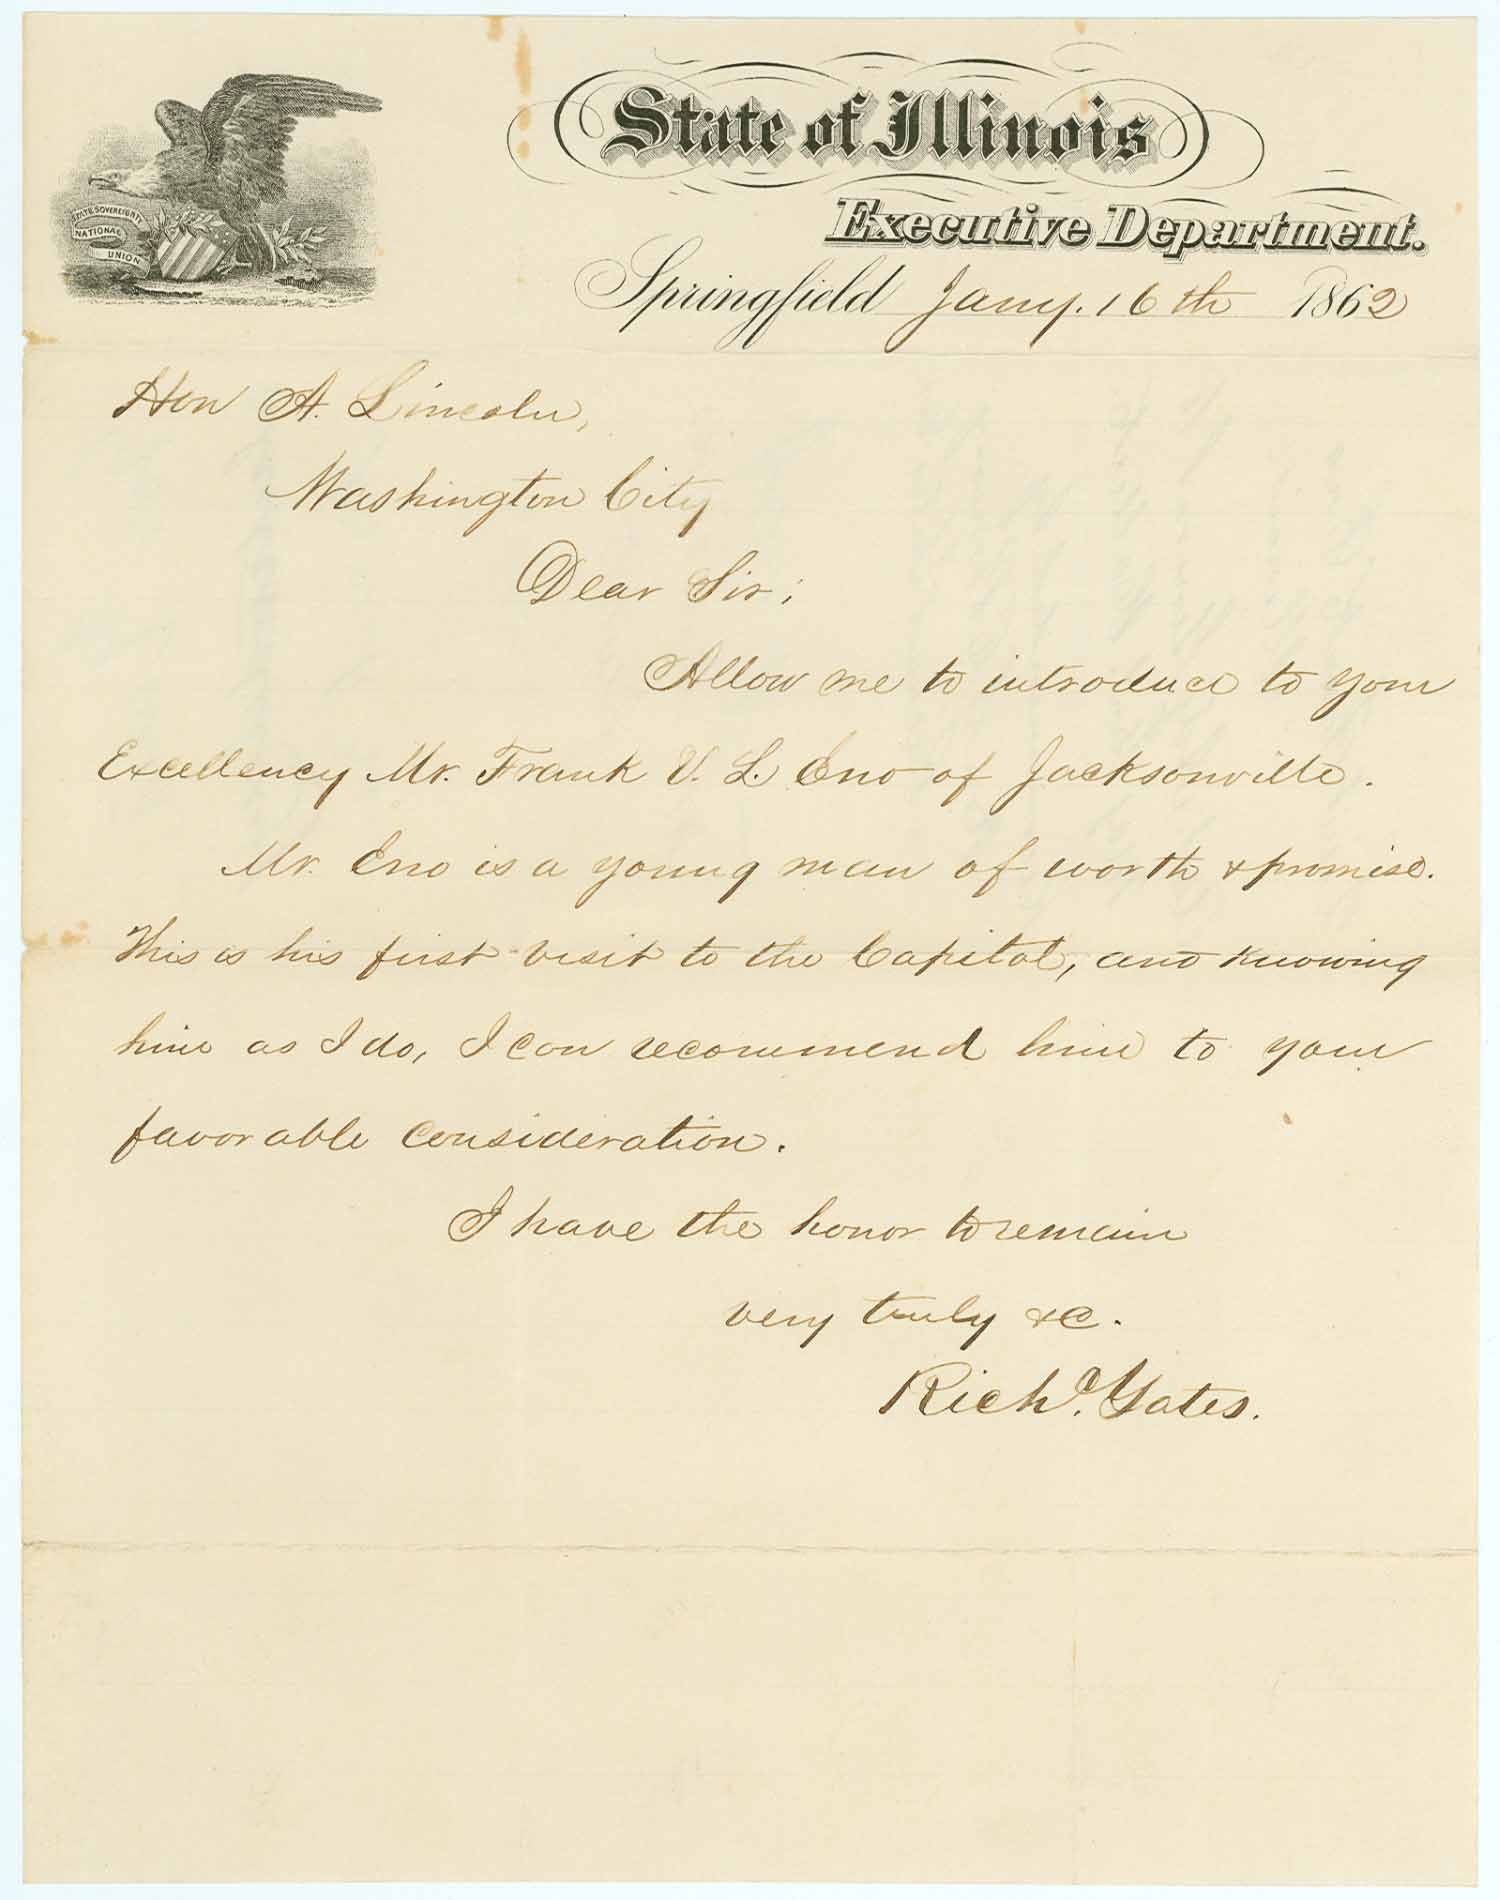 STATE SOVEREIGNTY
NATIONAL
UNION
State of Illinois
Executive Department.
Springfield Jany. 16th 1862
Hon A. Lincoln,
Washington City
Dear Sir;
Allow me to introduce to your
Excellency Mr. Frank V. L. Eno of Jacksonville.
Mr. Eno is a young man of worth & promise.
This is his first visit to the Capitol, and knowing
him as I do, I can recommend him to your
favorable consideration.
I have the honor to remain
very truly &c.
Richd. Yates.